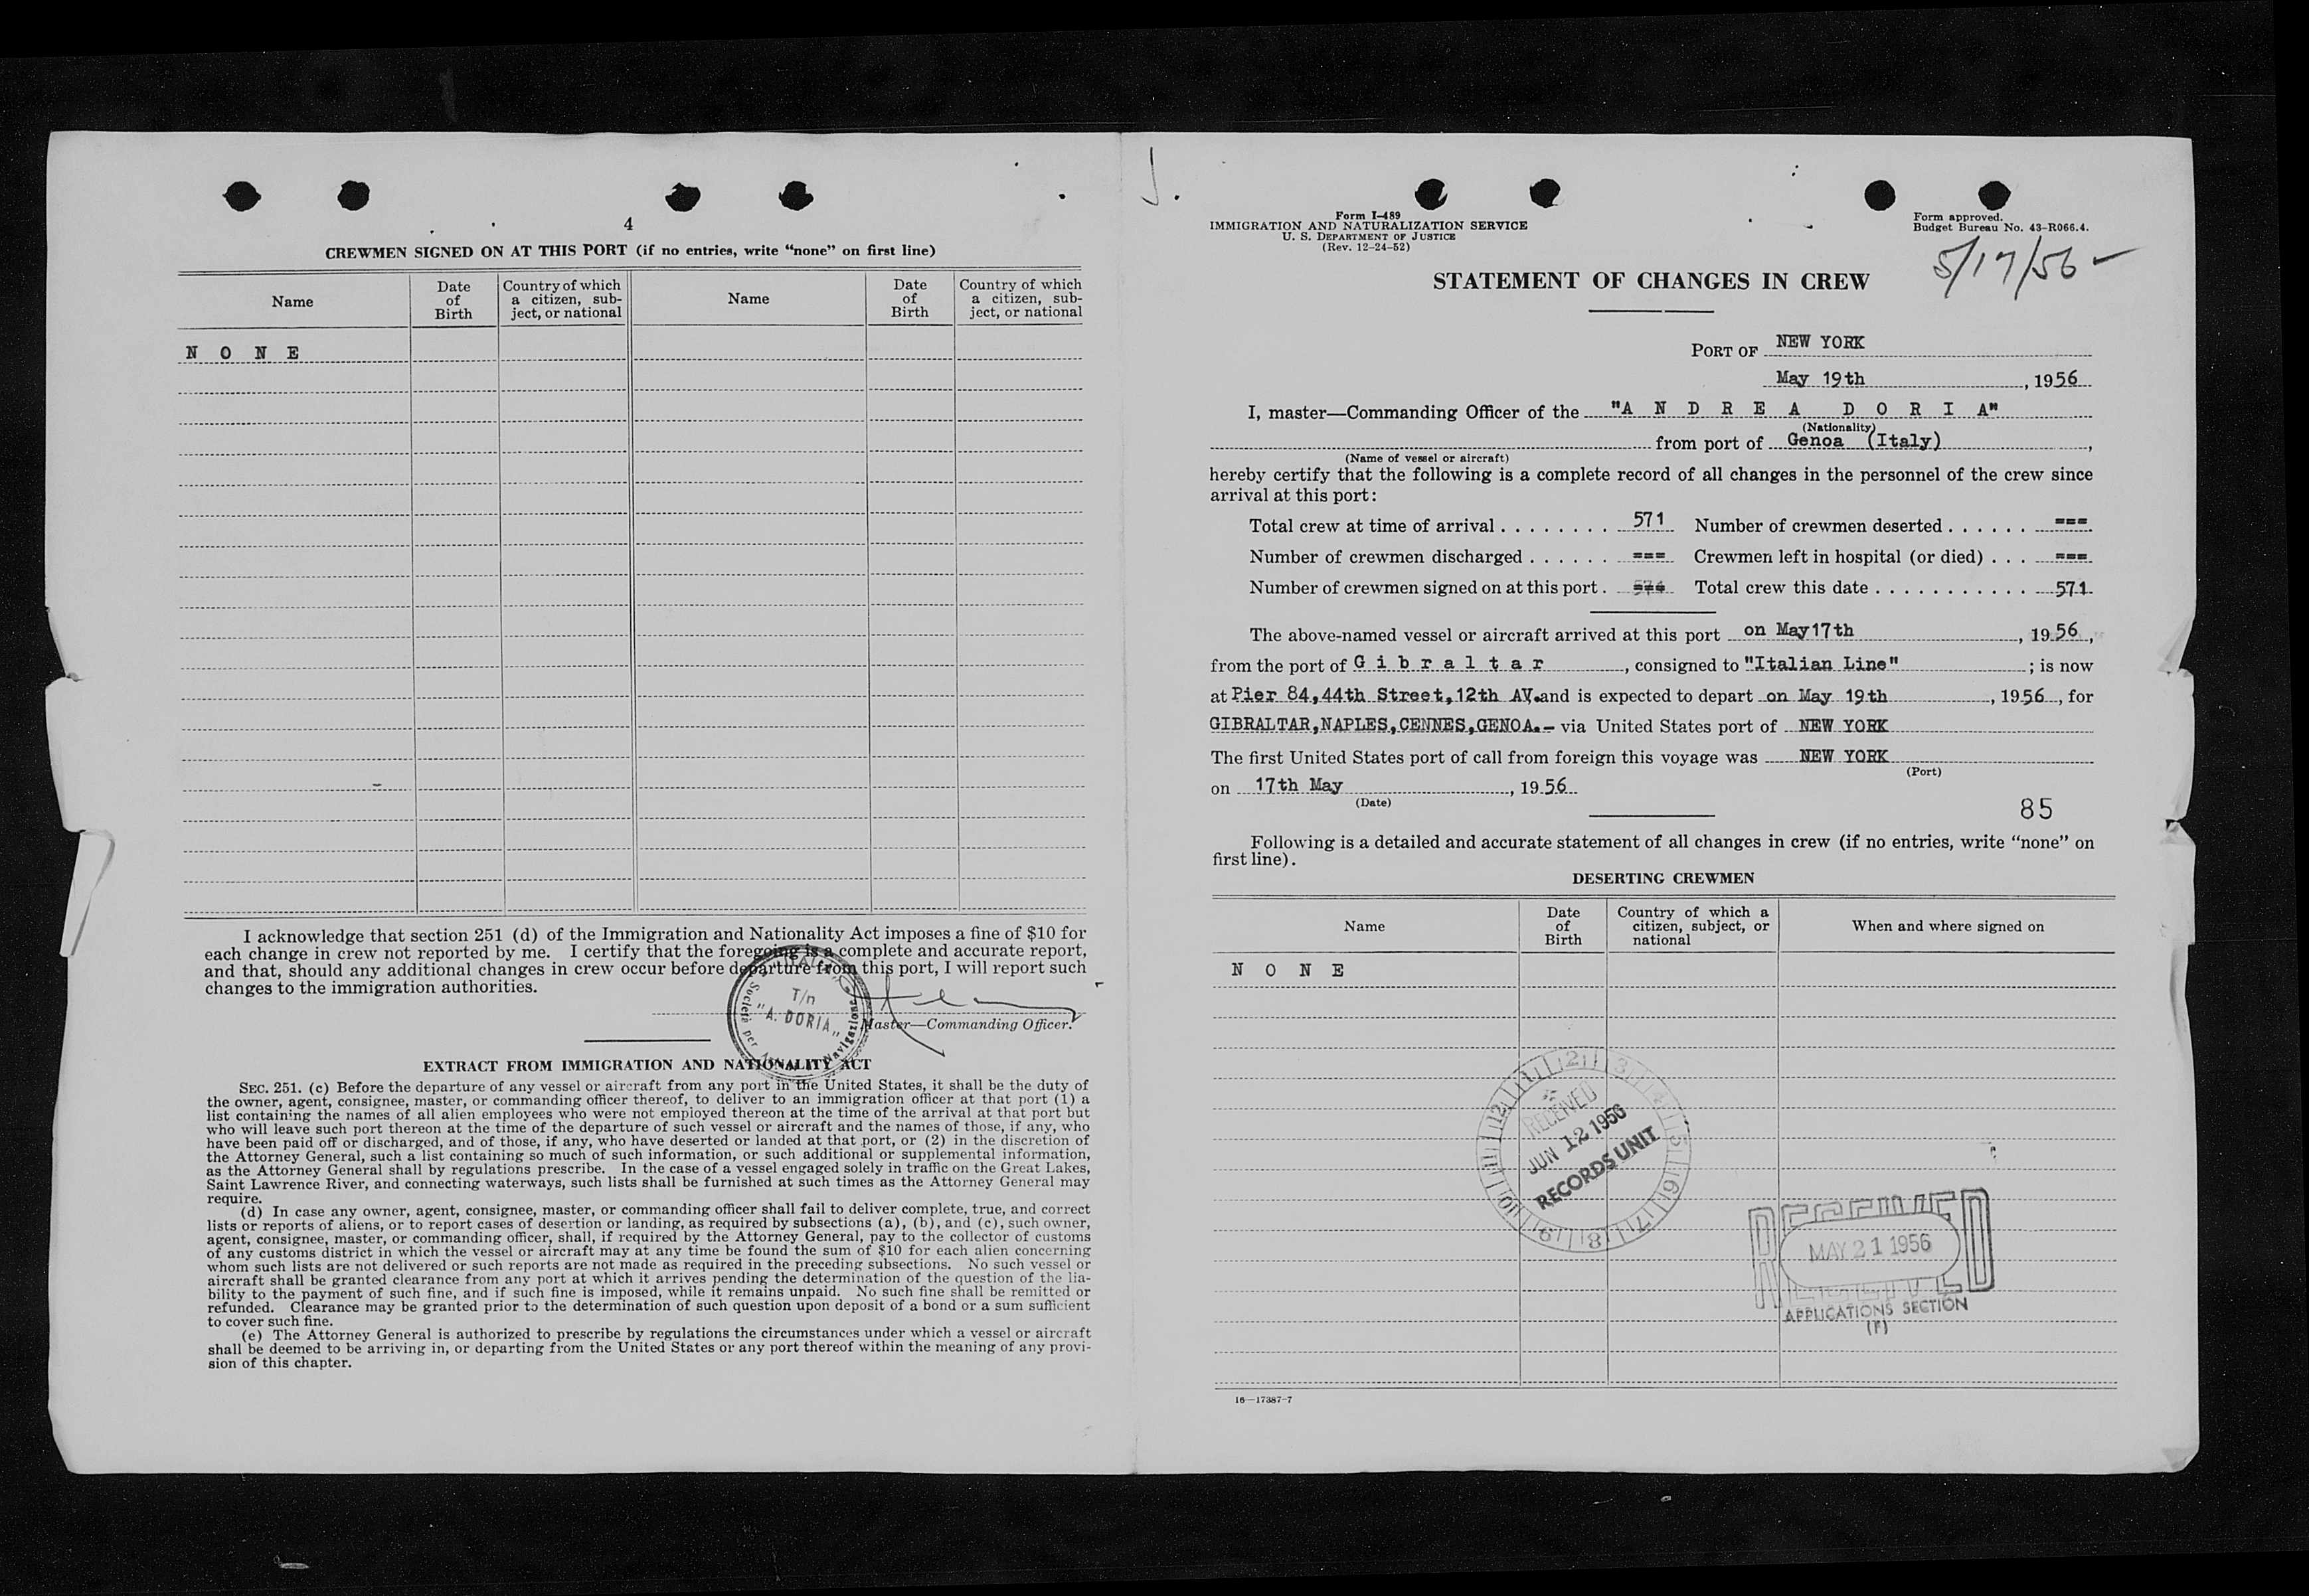 4
CREWMEN SIGNED ON AT THIS PORT (if no entries, write “none” on first line)
Name
Date of Birth
Country of which a citizen, subject, or national
Name
Date of Birth
Country of which a citizen, subject, or national
N O N E
I acknowledge that section 251 (d) of the Immigration and Nationality Act imposes a fine of $10 for
each change in crew not reported by me. I certify that the foregoing is a complete and accurate report,
and that, should any additional changes in crew occur before departure from this port, I will report such
changes to the immigration authorities.
T/n
"A. DORIA"
Master—Commanding Officer.
EXTRACT FROM IMMIGRATION AND NATIONALITY ACT
SEC. 251. (c) Before the departure of any vessel or aircraft from any port in the United States, it shall be the duty of
the owner, agent, consignee, master, or commanding officer thereof, to deliver to an immigration officer at that port (1) a
list containing the names of all alien employees who were not employed thereon at the time of the arrival at that port but
who will leave such port thereon at the time of the departure of such vessel or aircraft and the names of those, if any, who
have been paid off or discharged, and of those, if any, who have deserted or landed at that port, or (2) in the discretion of
the Attorney General, such a list containing so much of such information, or such additional or supplemental information,
as the Attorney General shall by regulations prescribe. In the case of a vessel engaged solely in traffic on the Great Lakes,
Saint Lawrence River, and connecting waterways, such lists shall be furnished at such times as the Attorney General may
require.
(d) In case any owner, agent, consignee, master, or commanding officer shall fail to deliver complete, true, and correct
lists or reports of aliens, or to report cases of desertion or landing, as required by subsections (a), (b), and (c), such owner,
agent, consignee, master, or commanding officer, shall, if required by the Attorney General, pay to the collector of customs
of any customs district in which the vessel or aircraft may at any time be found the sum of $10 for each alien concerning
whom such lists are not delivered or such reports are not made as required in the preceding subsections. No such vessel or
aircraft shall be granted clearance from any port at which it arrives pending the determination of the question of the lia-
bility to the payment of such fine, and if such fine is imposed, while it remains unpaid. No such fine shall be remitted or
refunded. Clearance may be granted prior to the determination of such question upon deposit of a bond or a sum sufficient
to cover such fine.
(e) The Attorney General is authorized to prescribe by regulations the circumstances under which a vessel or aircraft
shall be deemed to be arriving in, or departing from the United States or any port thereof within the meaning of any provi-
sion of this chapter.
Form I-489
IMMIGRATION AND NATURALIZATION SERVICE
U. S. DEPARTMENT OF JUSTICE
(Rev. 12-24-52)
Form approved.
Budget Bureau No. 43-R066.4.
5/17/56
STATEMENT OF CHANGES IN CREW
PORT OF NEW YORK
May 19th, 1956
I, master—Commanding Officer of the "A N D R E A D O R I A"
(Nationality)
from port of Genoa (Italy),
(Name of vessel or aircraft)
hereby certify that the following is a complete record of all changes in the personnel of the crew since
arrival at this port:
Total crew at time of arrival . . . . . . . . 571 Number of crewmen deserted . . . . . . ===
Number of crewmen discharged . . . . . . === Crewmen left in hospital (or died) . . . ===
Number of crewmen signed on at this port . === Total crew this date . . . . . . . . . . . 571
The above-named vessel or aircraft arrived at this port on May17th, 1956,
from the port of G i b r a l t a r, consigned to "Italian Line"; is now
at Pier 84,44th Street,12th AV. and is expected to depart on May 19th, 1956, for
GIBRALTAR,NAPLES,CENNES,GENOA.- via United States port of NEW YORK
The first United States port of call from foreign this voyage was NEW YORK
(Port)
on 17th May, 1956
(Date)
85
Following is a detailed and accurate statement of all changes in crew (if no entries, write “none” on
first line).
DESERTING CREWMEN
Name
Date of Birth
Country of which a citizen, subject, or national
When and where signed on
N O N E
RECEIVED
JUN 12 1956
RECORDS UNIT
RECEIVED
MAY 21 1956
APPLICATIONS SECTION
(F)
16—17387-7